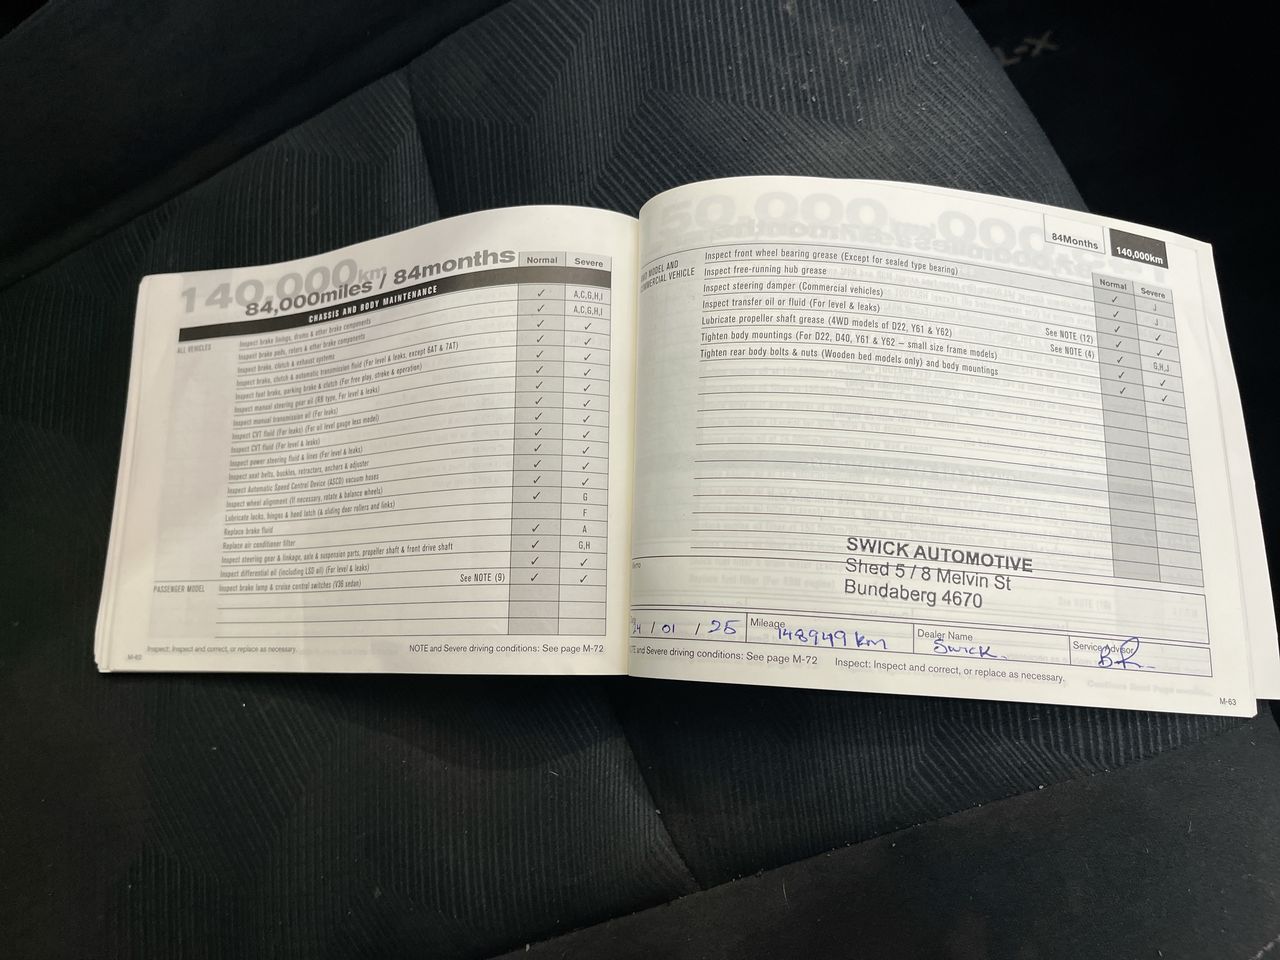 140,000km
84,000miles / 84months
Normal Severe
CHASSIS AND BODY MAINTENANCE
ALL VEHICLES
Inspect brake linings, drums & other brake components ✓ A,C,G,H,I
Inspect brake pads, rotors & other brake components ✓ A,C,G,H,I
Inspect brake, clutch & exhaust systems ✓ ✓
Inspect brake, clutch & automatic transmission fluid (For level & leaks, except 6AT & 7AT) ✓ ✓
Inspect foot brake, parking brake & clutch (For free play, stroke & operation) ✓ ✓
Inspect manual steering gear oil (RB type, For level & leaks) ✓ ✓
Inspect manual transmission oil (For leaks) ✓ ✓
Inspect CVT fluid (For leaks) (For oil level gauge less model) ✓ ✓
Inspect CVT fluid (For level & leaks) ✓ ✓
Inspect power steering fluid & lines (For level & leaks) ✓ ✓
Inspect seat belts, buckles, retractors, anchors & adjuster ✓ ✓
Inspect Automatic Speed Control Device (ASCD) vacuum hoses ✓ ✓
Inspect wheel alignment (If necessary, rotate & balance wheels) ✓ ✓
Lubricate locks, hinges & hood latch (& sliding door rollers and links) ✓ G
Replace brake fluid F
Replace air conditioner filter ✓ A
Inspect steering gear & linkage, axle & suspension parts, propeller shaft & front drive shaft ✓ G,H
Inspect differential oil (including LSD oil) (For level & leaks) ✓ ✓
PASSENGER MODEL Inspect brake lamp & cruise control switches (V36 sedan) See NOTE (9) ✓ ✓
Inspect: Inspect and correct, or replace as necessary.
NOTE and Severe driving conditions: See page M-72
M-62
84Months 140,000km
Normal Severe
MODEL AND
COMMERCIAL VEHICLE
Inspect front wheel bearing grease (Except for sealed type bearing) ✓ J
Inspect free-running hub grease ✓ J
Inspect steering damper (Commercial vehicles) ✓ ✓
Inspect transfer oil or fluid (For level & leaks) ✓ ✓
Lubricate propeller shaft grease (4WD models of D22, Y61 & Y62) See NOTE (12) ✓ G,H,J
Tighten body mountings (For D22, D40, Y61 & Y62 – small size frame models) See NOTE (4) ✓ ✓
Tighten rear body bolts & nuts (Wooden bed models only) and body mountings ✓ ✓
SWICK AUTOMOTIVE
Shed 5 / 8 Melvin St
Bundaberg 4670
24 / 01 / 25
Mileage 148949 km
Dealer Name Swick.
Service Advisor
and Severe driving conditions: See page M-72
Inspect: Inspect and correct, or replace as necessary.
M-63
L-X